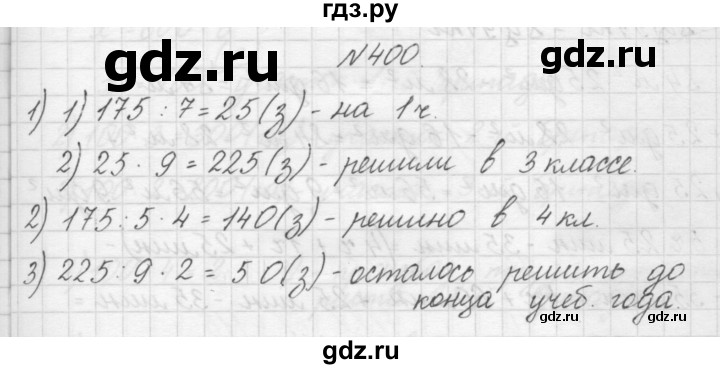 гдз.ру
gdz.ru
gdz.ru
N400.
1) 1) 175 : 7 = 25 (з) - на 1 ч.
2) 25 · 9 = 225 (з) - решили в 3 классе.
2) 175 : 5 · 4 = 140 (з) - решино в 4 кл.
3) 225 : 9 · 2 = 50 (з) - осталось решить до
конца учеб. года
gdz.ru
gdz.ru
gdz.ru